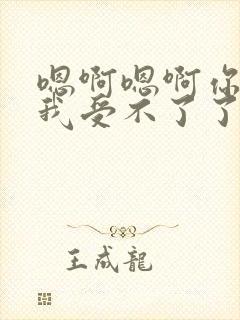 嗯啊嗯啊你
我受不了了
王成龍